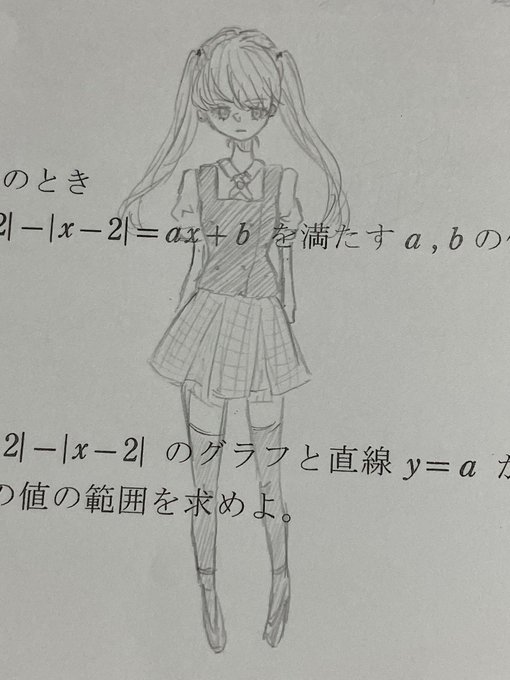 のとき
2|−|x−2|=ax+b を満たす a , b の
2|−|x−2| のグラフと直線 y=a
の値の範囲を求めよ。